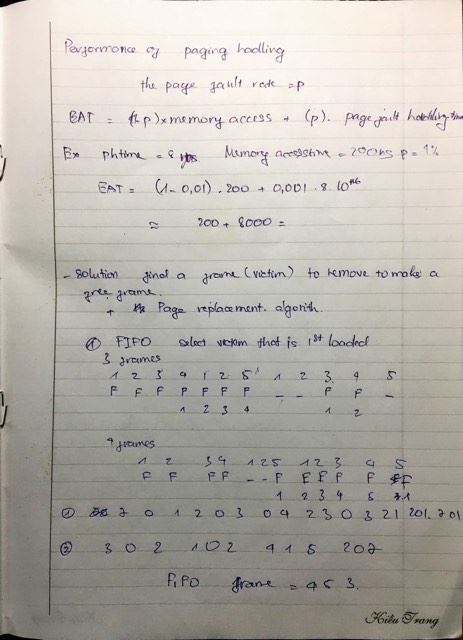 Performance of paging hadling
the page fault rate = p
EAT = (1-p)×memory access + (p). page fault handling time
Ex phtime = 8 ms Memory accesstime = 200ns p = 1%
EAT = (1-0,01) . 200 + 0,001 . 8. 10
≈ 200 + 8000 =
- Solution find a frame (victim) to remove to make a
free frame.
+ Page replacement. algorith.
① FIFO select victim that is 1st loaded
3 frames
1 2 3 4 1 2 5 1 2 3 4 5
F F F F F F F - - F F -
1 2 3 4 1 2
4 frames
1 2 3 4 1 2 5 1 2 3 4 5
F F F F - - F F F F F F
1 2 3 4 5 1
① 7 0 1 2 0 3 0 4 2 3 0 3 2 1 201. 701
② 3 0 2 1 0 2 4 1 5 2 0 7
FIFO frame = 4 5 3.
Kiều Trang